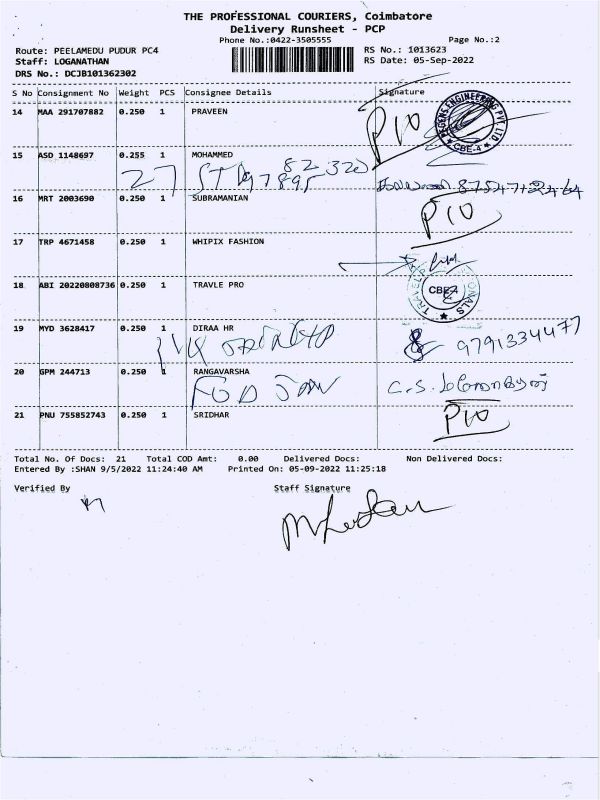 THE PROFESSIONAL COURIERS, Coimbatore
Delivery Runsheet - PCP
Phone No.:0422-3505555 Page No.:2
Route: PEELAMEDU PUDUR PC4 RS No.: 1013623
Staff: LOGANATHAN RS Date: 05-Sep-2022
DRS No.: DCJB101362302
S No Consignment No Weight PCS Consignee Details Signature
14 MAA 291707882 0.250 1 PRAVEEN P10
CBE-4
15 ASD 1148697 0.255 1 MOHAMMED
27
16 MRT 2003690 0.250 1 SUBRAMANIAN P10
17 TRP 4671458 0.250 1 WHIPIX FASHION
18 ABI 20220808736 0.250 1 TRAVLE PRO CBE-4
19 MYD 3628417 0.250 1 DIRAA HR
9791334477
20 GPM 244713 0.250 1 RANGAVARSHA
21 PNU 755852743 0.250 1 SRIDHAR P10
Total No. Of Docs: 21 Total COD Amt: 0.00 Delivered Docs: Non Delivered Docs:
Entered By :SHAN 9/5/2022 11:24:40 AM Printed On: 05-09-2022 11:25:18
Verified By Staff Signature